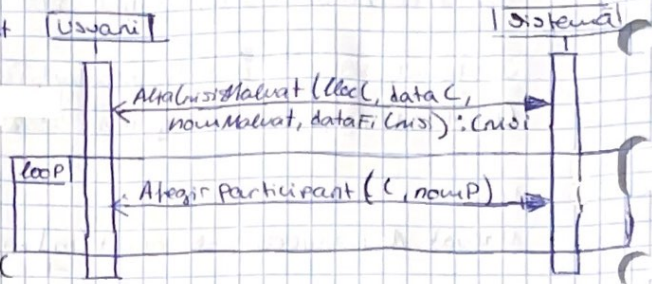 Usuari
Sistema
AltaCrisiMalvat (llocC, dataC,
nomMalvat, dataFiCrisi) : Crisi
loop
Afegir participant (C, nomP)